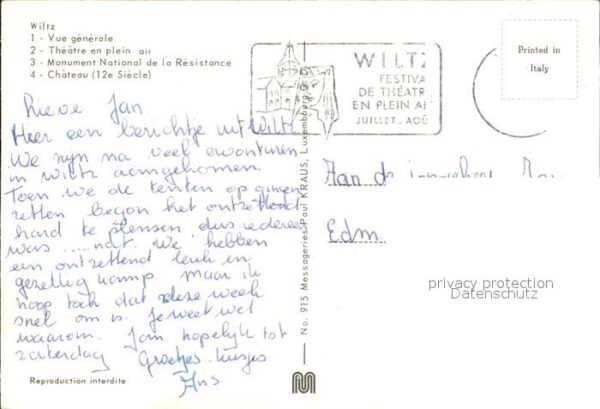 Wiltz
1 - Vue générale
2 - Théâtre en plein air
3 - Monument National de la Résistance
4 - Château (12e Siècle)
WILTZ
FESTIVA
DE THÉATR
EN PLEIN AI
JUILLET. AOÛ
Printed in
Italy
Lieve Jan.
Heer een berichtje uit Wiltz
We zijn na veel avonturen
in wiltz aangekomen.
Toen we de tenten op gingen
zetten begon het ontzettend
hard te plensen, dus iedereen
was ..... nat. We hebben
een ontzettend leuk en
gezellig kamp maar ik
hoop toch dat deze week
snel om is. Je weet wel
waarom. Jan hopelijk tot
zaterdag Groetjes-kusjes
Ans
Aan de
Edm
No. 915 Messageries Paul KRAUS, Luxembourg
privacy protection
Datenschutz
Reproduction interdite